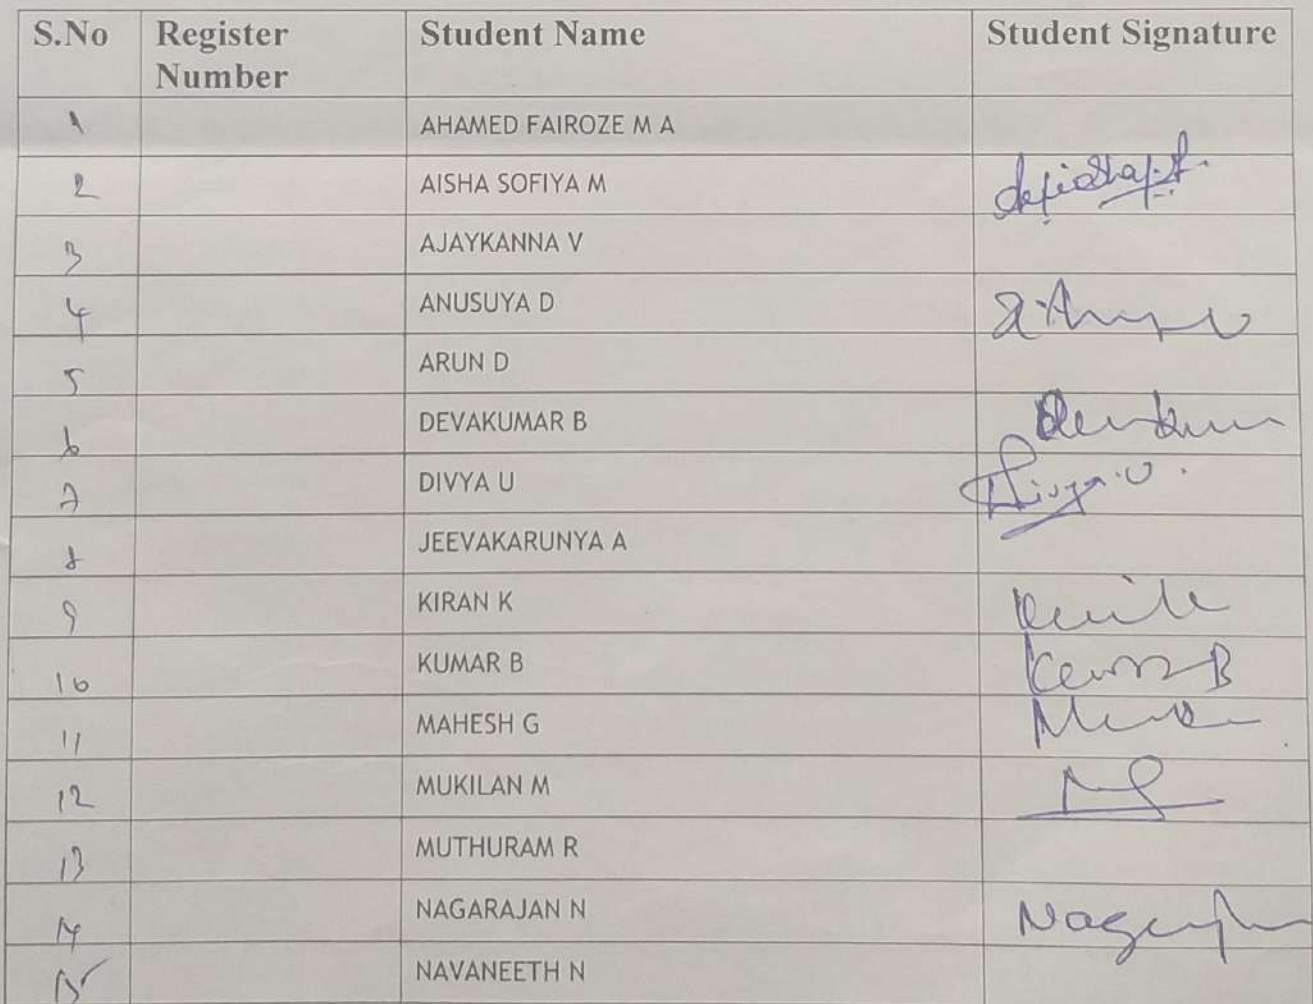 S.No Register Number Student Name Student Signature
1 AHAMED FAIROZE M A
2 AISHA SOFIYA M
3 AJAYKANNA V
4 ANUSUYA D
5 ARUN D
6 DEVAKUMAR B
7 DIVYA U Divya.U.
8 JEEVAKARUNYA A
9 KIRAN K
10 KUMAR B
11 MAHESH G
12 MUKILAN M
13 MUTHURAM R
14 NAGARAJAN N
15 NAVANEETH N